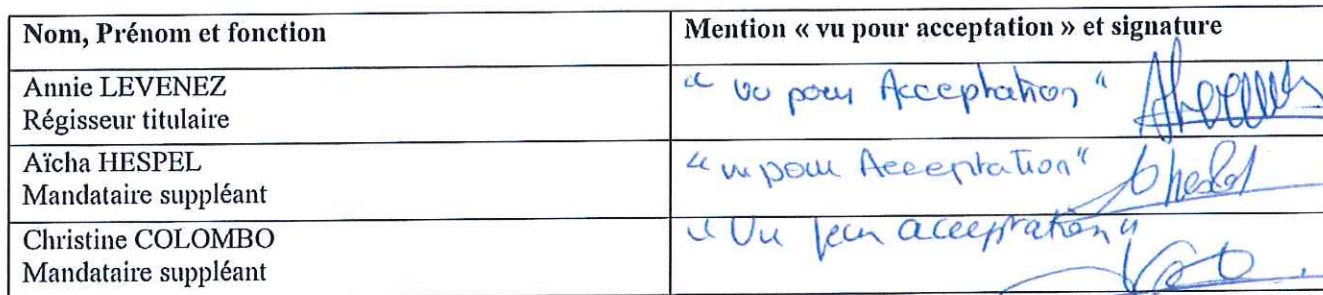 Nom, Prénom et fonction
Mention « vu pour acceptation » et signature
Annie LEVENEZ
Régisseur titulaire
" vu pour Acceptation "
Aïcha HESPEL
Mandataire suppléant
" vu pour Acceptation "
Christine COLOMBO
Mandataire suppléant
" Vu pour acceptation "